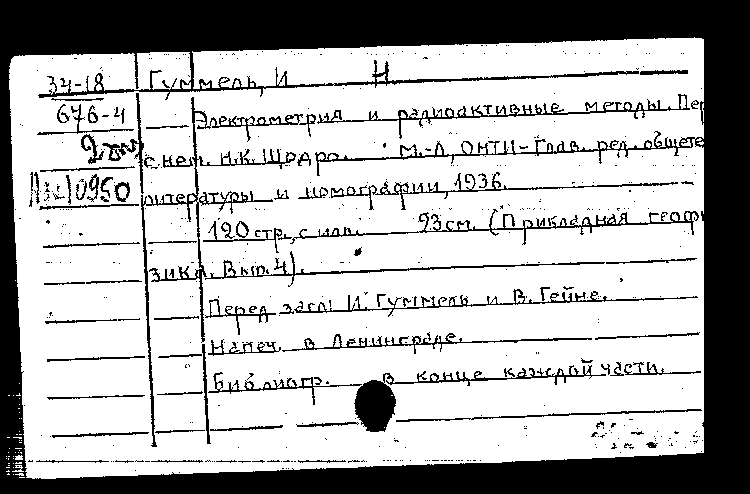 34-18 Гуммель, И Н
676-4 Электрометрия и радиоактивные методы. Пер
с нем. Н.К. Щодро. М.-Л, ОНТИ-Глав. ред. общете
литературы и номографии, 1936.
120 стр., с илл. 23см. (Прикладная геофи
зика. Вып. 4).
Перед загл: И. Гуммель и В. Гейне.
Напеч. в Ленинграде.
Библиогр. в конце каждой части.